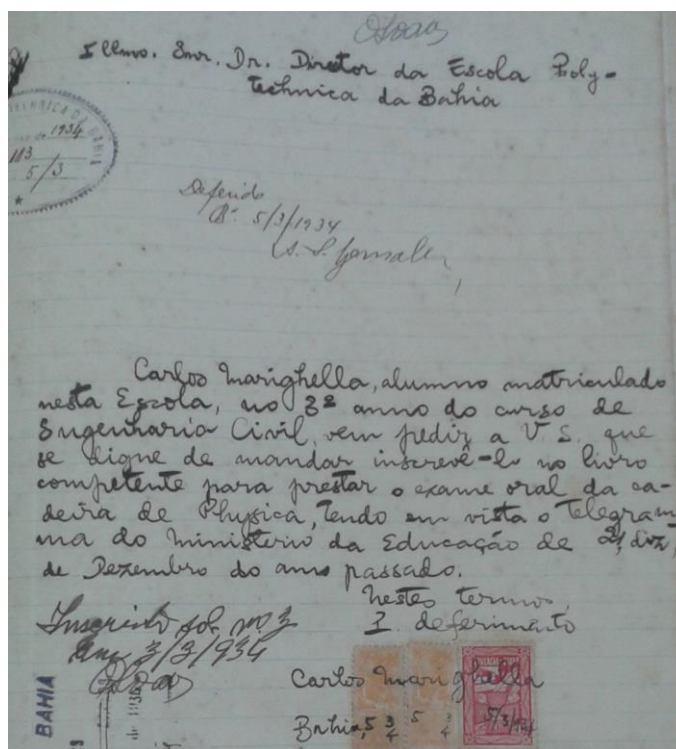 Illmo. Snr. Dr. Director da Escola Poly-
technica da Bahia
1934
113
5/3
Deferido
Bª. 5/3/1934
Carlos Marighella, alumno matriculado
nesta Escola, no 3º anno do curso de
Engenharia Civil, vem pedir a V. S. que
se digne de mandar inscrevê-lo no livro
competente para prestar o exame oral da ca-
deira de Physica, tendo em vista o telegram
ma do Ministerio da Educação de
de Dezembro do anno passado.
Nestes termos,
P. deferimento
Inscripto sob nº 3
3/3/934
Carlos Marighella
Bahia, 5 3 4 5 3 4 5/3/934
BAHIA